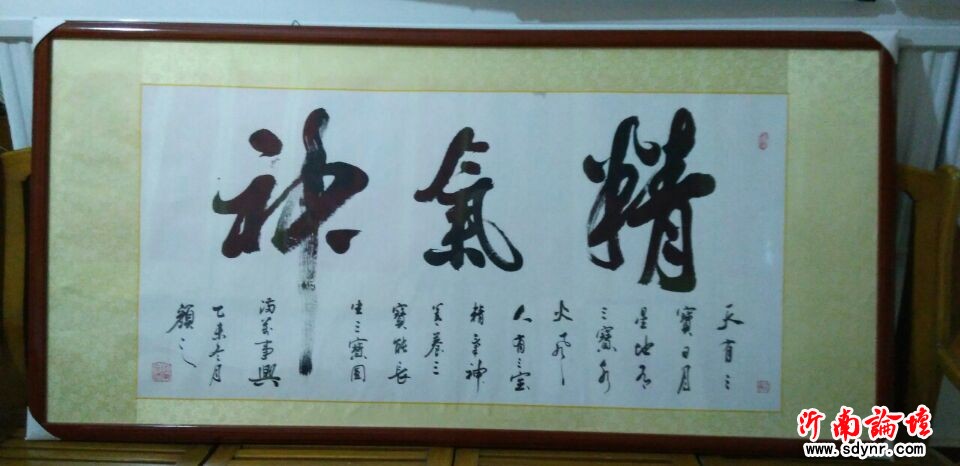 精氣神
天有三
寶日月
星地有
三寶水
火風
人有三宝
精氣神
善養三
寶能長
生三寶圓
满萬事興
乙未冬月
顏之
沂南論壇
www.sdynr.com